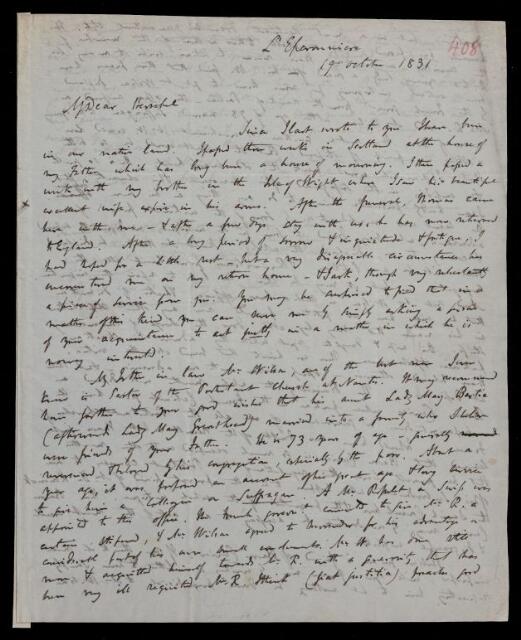 408
19 October 1831
My dear Herschel
Since I last wrote to you I have been
in our native land. I passed three weeks in Scotland at the house of
my father which has long been a house of mourning. I then passed a
week with my brother in the Isle of Wight where I saw his beautiful
excellent wife expire in his arms. After the funeral, Thomas came
here with me - & after a few days stay with us, he has now returned
to England. After a long period of sorrow & inquietude & fatigue, I
had hoped for a little rest - but a very disagreeable circumstance has
encountered me on my return home - & I ask, though very reluctantly
a piece of service from you. You may be surprised to find that in a
matter of this kind you can serve me by simply asking a friend
of your acquaintance to act justly in a matter in which he is
now
My father in law Mr. Wilson, one of the best men I ever
knew is Pastor of the Protestant Church at Nantes. It may recommend
him farther to your good wishes that his aunt Lady Mary Bertie
(afterwards Lady Mary Greathead) married into a family who I believe
were friends of your Father. He is 73 years of age -
reverenced & beloved by his congregation, especially by the poor. About a
year ago, it was proposed on account of his great age & long service
to give him a Colleague or Suffragan. A Mr. a Swiss was
appointed to this office. The French government consented to give Mr. R. a
certain stipend, & Mr. Wilson agreed to surrender for his advantage a
considerable part of his own small emoluments. Mr. W. has done still
more & acquitted himself towards Mr. R. with a generosity that has
been very ill requited. Mr. R. I think (fiat justitia) preaches good